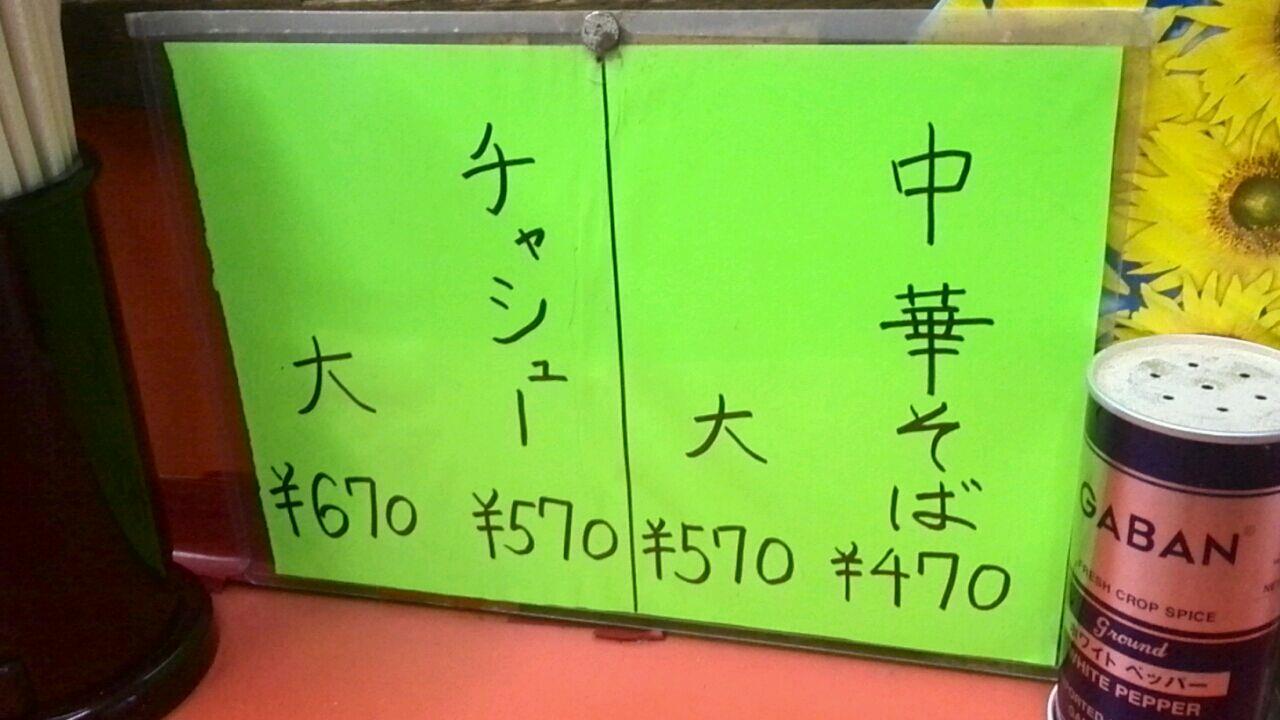 中華そば
¥470
大
¥570
チャシュー
¥570
大
¥670
GABAN
FRESH CROP SPICE
Ground
ホワイト ペッパー
WHITE PEPPER